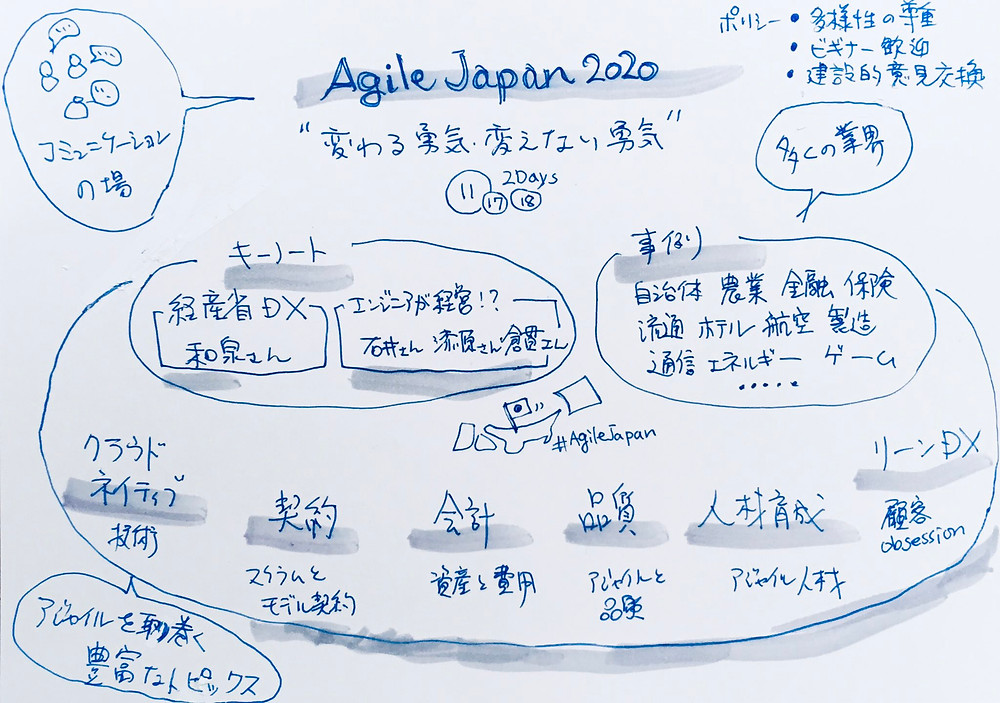 ポリシー・多様性の尊重
・ビギナー歓迎
・建設的意見交換
Agile Japan 2020
"変わる勇気・変えない勇気"
11 17 18 2Days
コミュニケーション
の場
多くの業界
キーノート
経産省DX
和泉さん
エンジニアが経営!?
石井さん 漆原さん 倉貫さん
事例
自治体 農業 金融 保険
流通 ホテル 航空 製造
通信 エネルギー ゲーム
・・・・・
#AgileJapan
クラウド
ネイティブ
技術
契約
スクラムと
モデル契約
会計
資産と費用
品質
アジャイルと
品質
人材育成
アジャイル人材
リーンDX
顧客
obsession
アジャイルを取巻く
豊富なトピックス